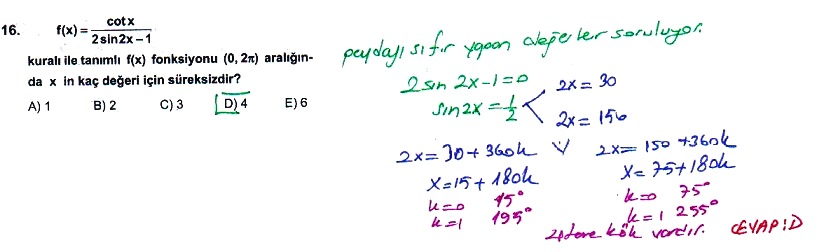 16. f(x) = cotx / 2sin2x – 1
kuralı ile tanımlı f(x) fonksiyonu (0, 2π) aralığın-
da x in kaç değeri için süreksizdir?
A) 1 B) 2 C) 3 D) 4 E) 6
paydayı sıfır yapan değerler soruluyor.
2 sin 2x-1=0
sin2x = 1/2
2x = 30
2x = 150
2x = 30 + 360k V 2x = 150 + 360k
x = 15 + 180k x = 75 + 180k
k=0 15° k=0 75°
k=1 195° k=1 255°
kök vardır. CEVAP: D